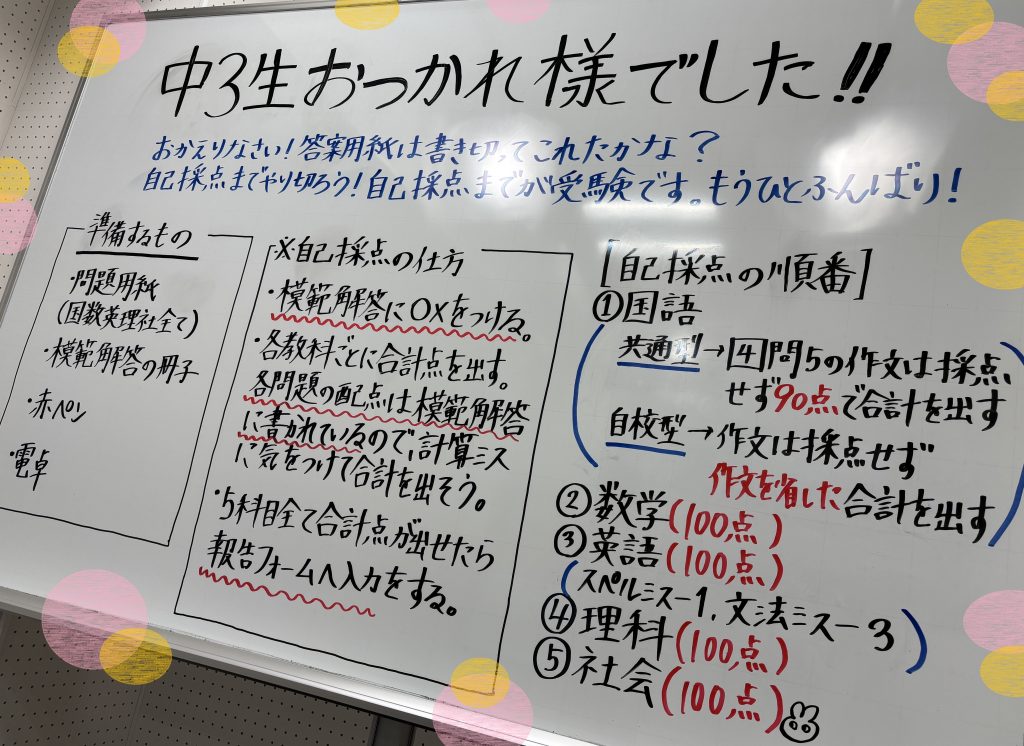 中3生おつかれ様でした!!
おかえりなさい!答案用紙は書き切ってこれたかな?
自己採点までやり切ろう!自己採点までが受験です。もうひとふんばり!
準備するもの
・問題用紙
(国数英理社全て)
・模範解答の冊子
・赤ペン
・電卓
※自己採点の仕方
・模範解答に○×をつける。
・各教科ごとに合計点を出す。
各問題の配点は模範解答
に書かれているので、計算ミス
に気をつけて合計を出そう。
・5科目全て合計点が出せたら
報告フォームへ入力をする。
[自己採点の順番]
①国語
共通型→4問5の作文は採点
せず90点で合計を出す
自校型→作文は採点せず
作文を省した合計を出す
②数学(100点)
③英語(100点)
(スペルミスー1.文法ミスー3)
④理科(100点)
⑤社会(100点)